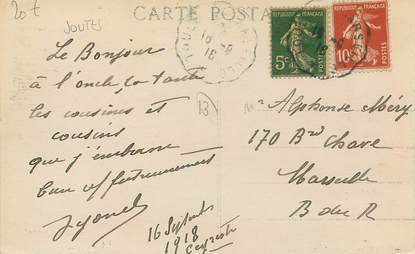 20€
JOUTES
CARTE POSTA
Le Bonjour
à l'oncle, la tante
les cousines et
cousins
que j'embrasse
bien affectueusement
16 Septembre
1918
Ceyreste
13
REPUBLIQUE FRANÇAISE
5c
POSTES
REPUBLIQUE FRANÇAISE
10c
POSTES
18 -9
18
Mr Alphonse Méry
170 Bd Chave
Marseille
B du R